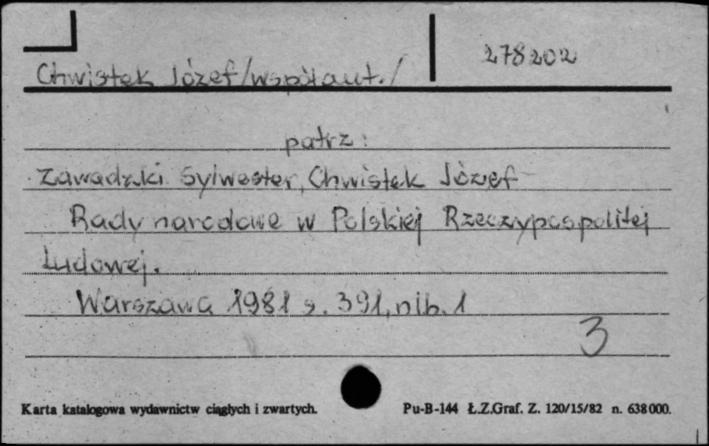 278202
Chwistek Józef/współaut./
patrz:
Zawadzki Sylwester, Chwistek Józef
Rady narodowe w Polskiej Rzeczypospolitej
Ludowej.
Warszawa 1981 s. 391, nlb. 1
3
Karta katalogowa wydawnictw ciągłych i zwartych. Pu-B-144 Ł.Z.Graf. Z. 120/15/82 n. 638000.